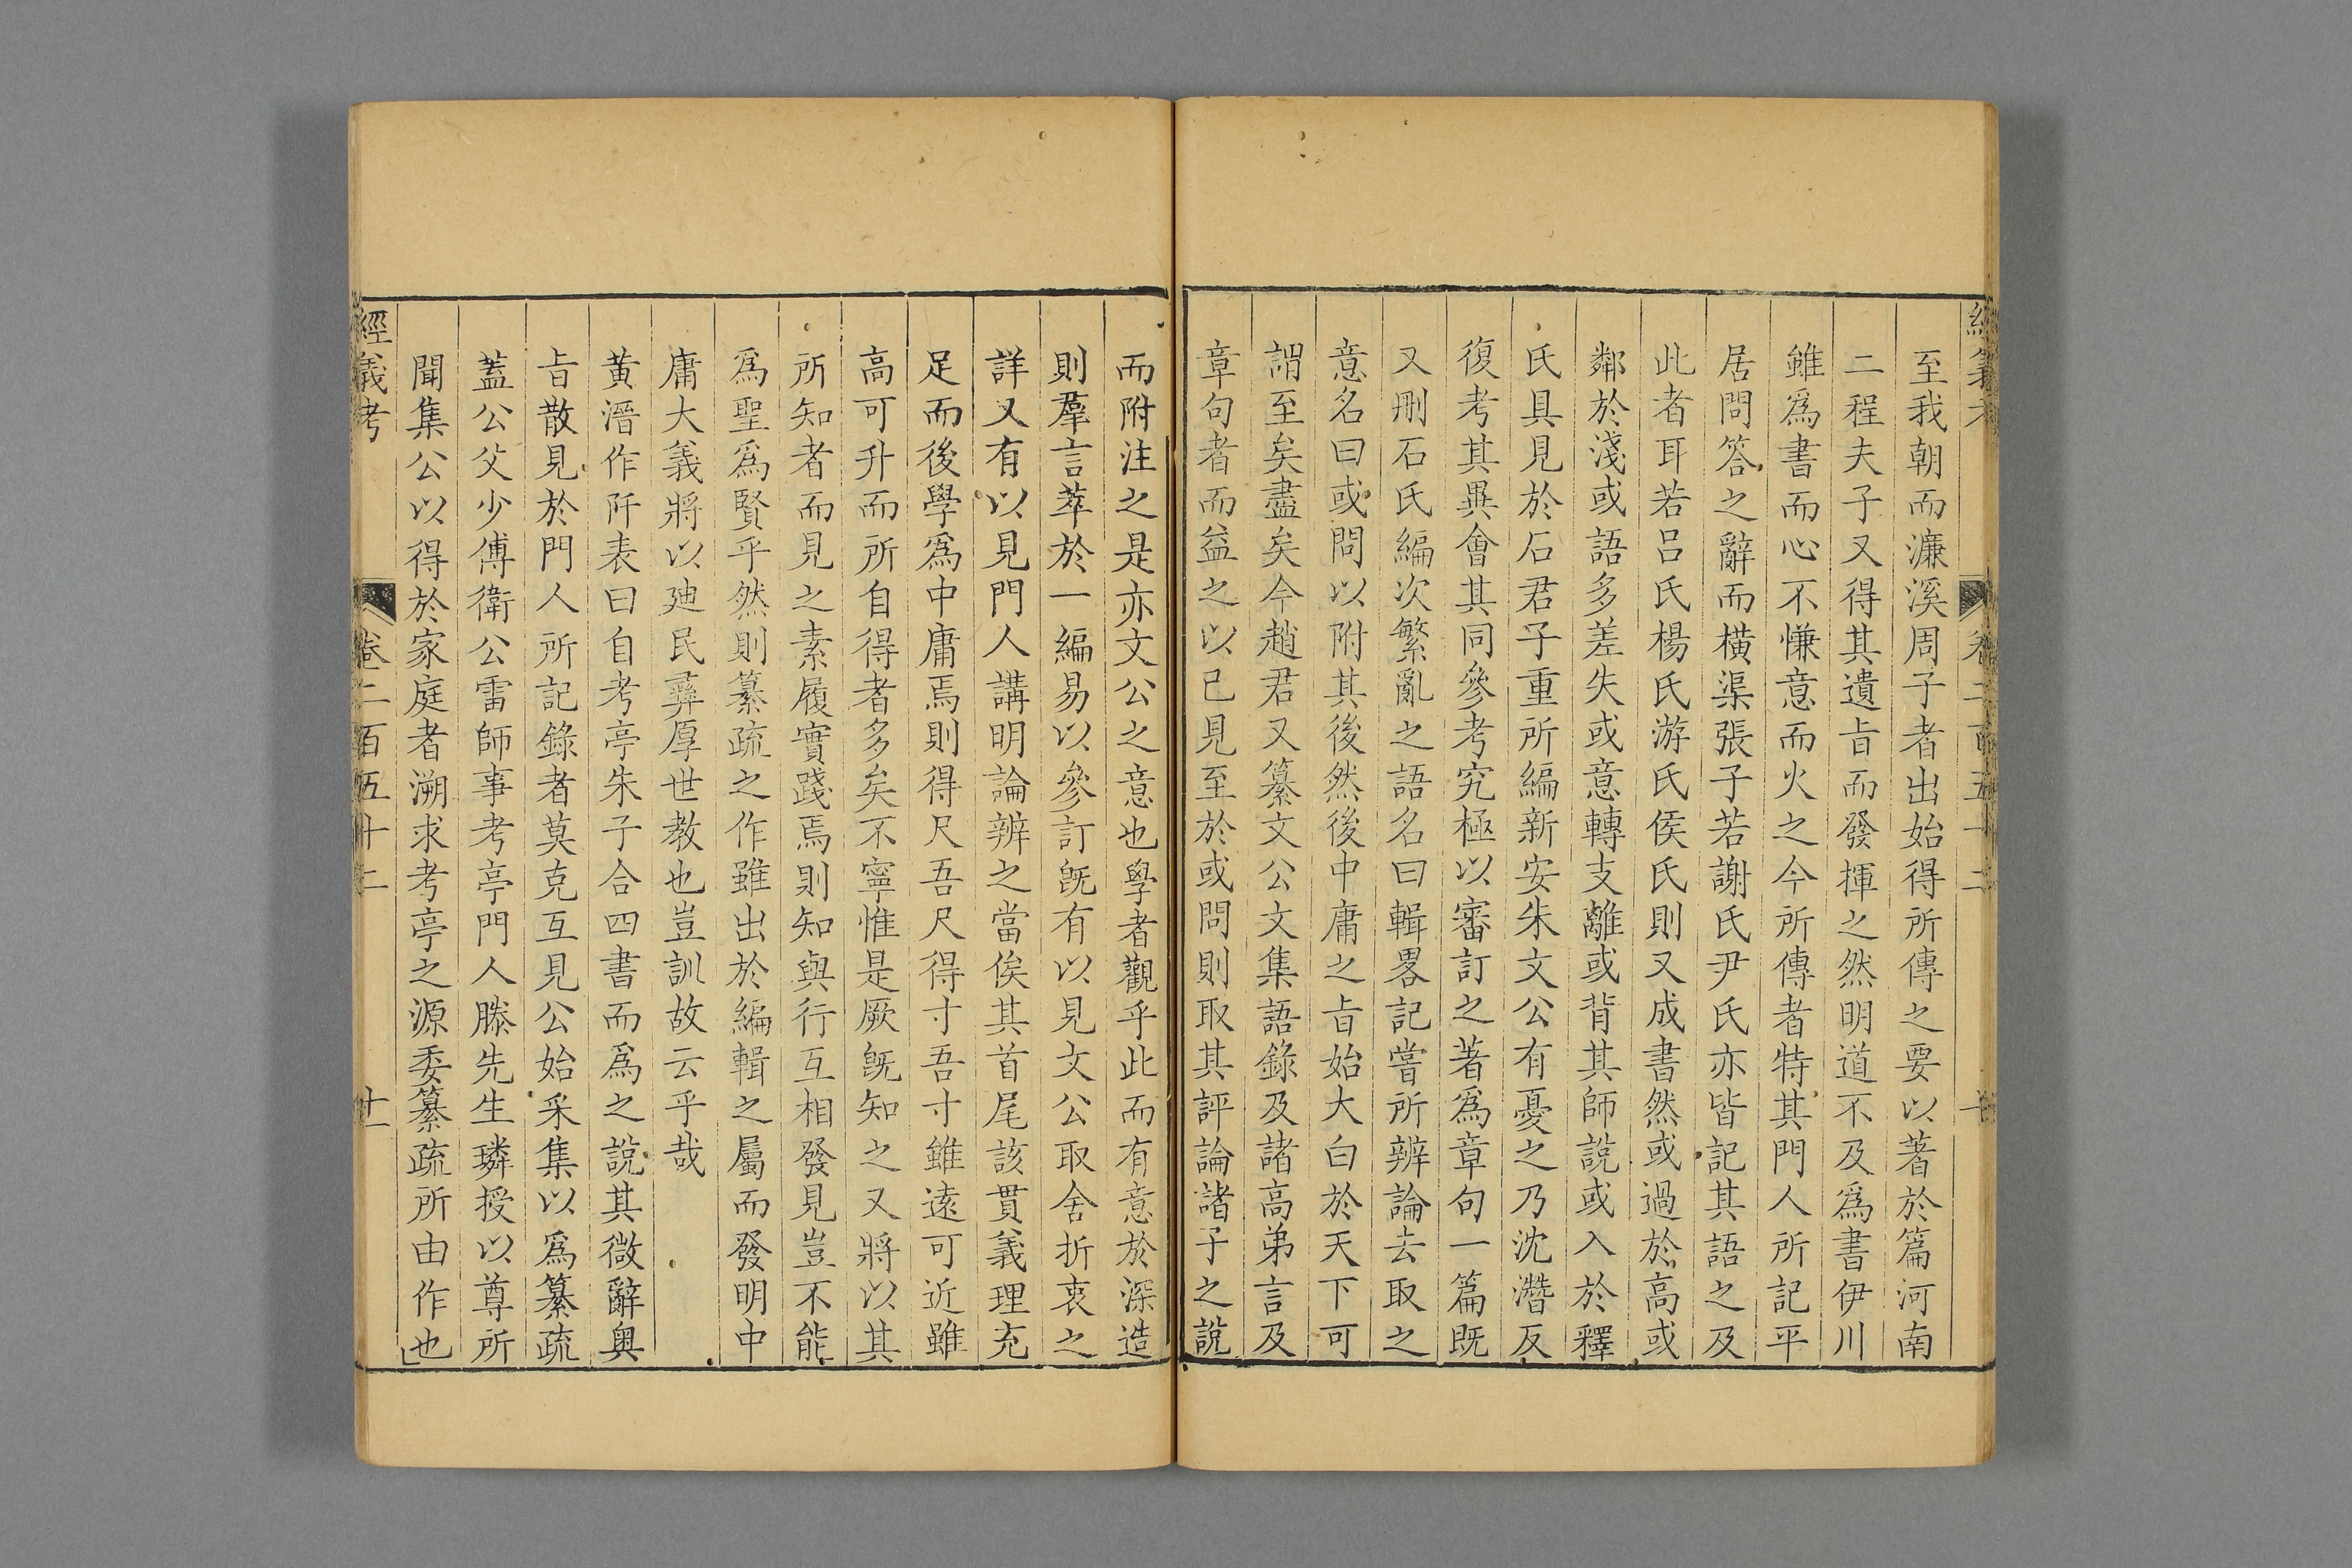 至我朝而濂溪周子者出始得所傳之要以著於篇河南
二程夫子又得其遺旨而發揮之然明道不及爲書伊川
雖爲書而心不慊意而火之今所傳者特其門人所記平
居問答之辭而橫渠張子若謝氏尹氏亦皆記其語之及
此者耳若呂氏楊氏游氏侯氏則又成書然或過於高或
鄰於淺或語多差失或意轉支離或背其師說或入於釋
氏具見於石君子重所編新安朱文公有憂之乃沈潛反
復考其異會其同參考究極以審訂之著爲章句一篇既
又刪石氏編次繁亂之語名曰輯畧記嘗所辨論去取之
意名曰或問以附其後然後中庸之旨始大白於天下可
謂至矣盡矣今趙君又纂文公文集語錄及諸高弟言及
章句者而益之以已見至於或問則取其評論諸子之說
而附注之是亦文公之意也學者觀乎此而有意於深造
則羣言萃於一編易以參訂旣有以見文公取舍折衷之
詳又有以見門人講明論辨之當俟其首尾該貫義理充
足而後學爲中庸焉則得尺吾尺得寸吾寸雖遠可近雖
高可升而所自得者多矣不寧惟是厥旣知之又將以其
所知者而見之素履實踐焉則知與行互相發見豈不能
爲聖爲賢乎然則纂疏之作雖出於編輯之屬而發明中
庸大義將以廸民彞厚世教也豈訓故云乎哉
黃溍作阡表曰自考亭朱子合四書而爲之說其微辭奧
旨散見於門人所記錄者莫克互見公始采集以爲纂疏
蓋公父少傅衛公雷師事考亭門人滕先生璘授以尊所
聞集公以得於家庭者溯求考亭之源委纂疏所由作也
經義考
卷二百五十二
十一